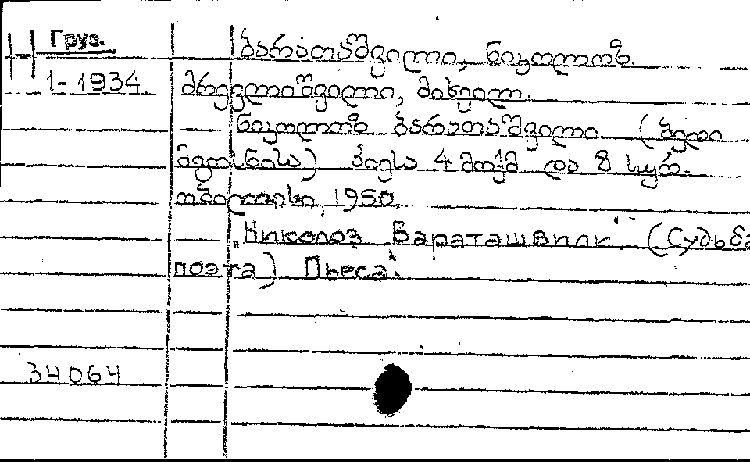 Груз. ბარათაშვილი, ნიკოლოზ.
1-1934 მრევლიშვილი, მიხეილ.
ნიკოლოზ ბარათაშვილი (ბედი
მგოსნისა) პიესა 4 მოქმ და 8 სურ.
თბილისი, 1950
„Николоз Бараташвили" (Судьба
поэта) Пьеса.
34064